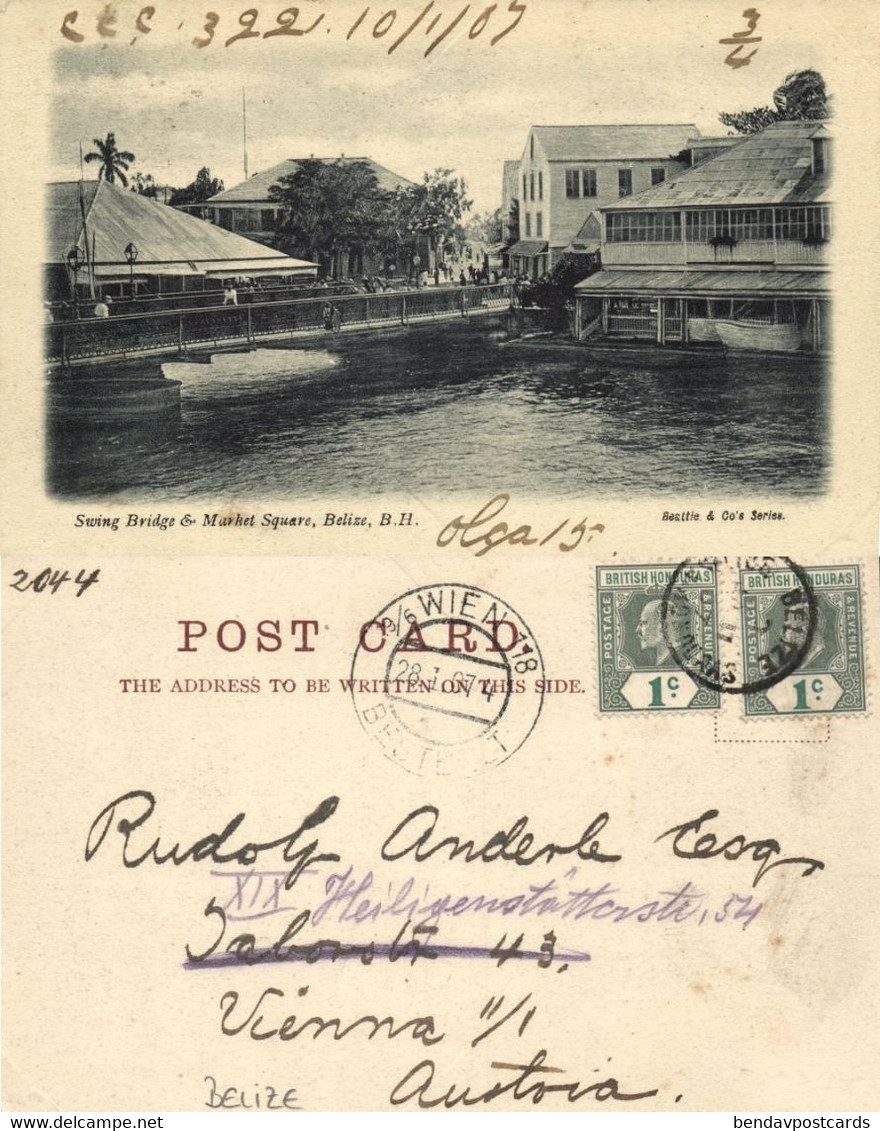 C C C 322. 10/1/07
3/4
Swing Bridge & Market Square, Belize, B.H.
Olga 15
Beattie & Co's Series.
2044
POST CARD.
THE ADDRESS TO BE WRITTEN ON THIS SIDE.
18/6 WIEN 118
28.I.07 4
BESTELLT
BRITISH HONDURAS
POSTAGE
& REVENUE
1c.
BRITISH HONDURAS
POSTAGE
& REVENUE
1c.
BELIZE
Rudolf Anderle Esq
XIX Heiligenstätterstr. 54
Taborstr 43.
Vienna II/1
Austria.
BELIZE
bendavpostcards